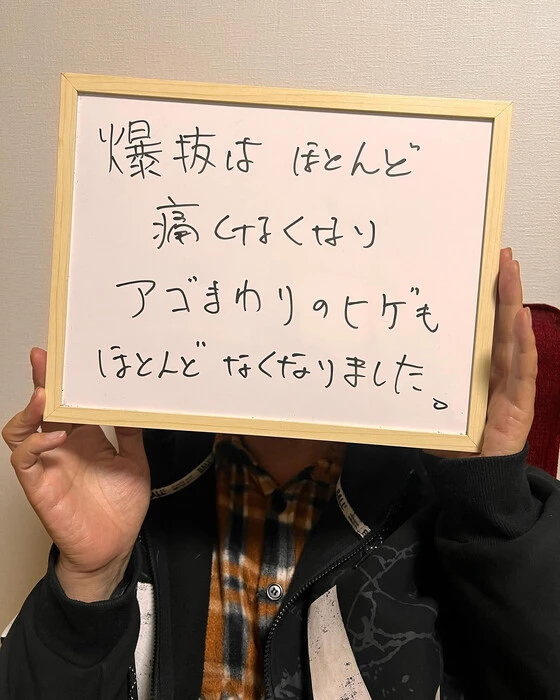 爆抜は ほとんど
痛くなくなり
アゴまわりのヒゲも
ほとんど なくなりました。